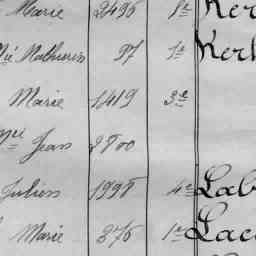 Marie 2496 1e Ker
Mathurin 97 1e Kerl
Marie 1419 3e
Jean 2800
Julien 1998 4e Lab
Marie 376 1e Lac